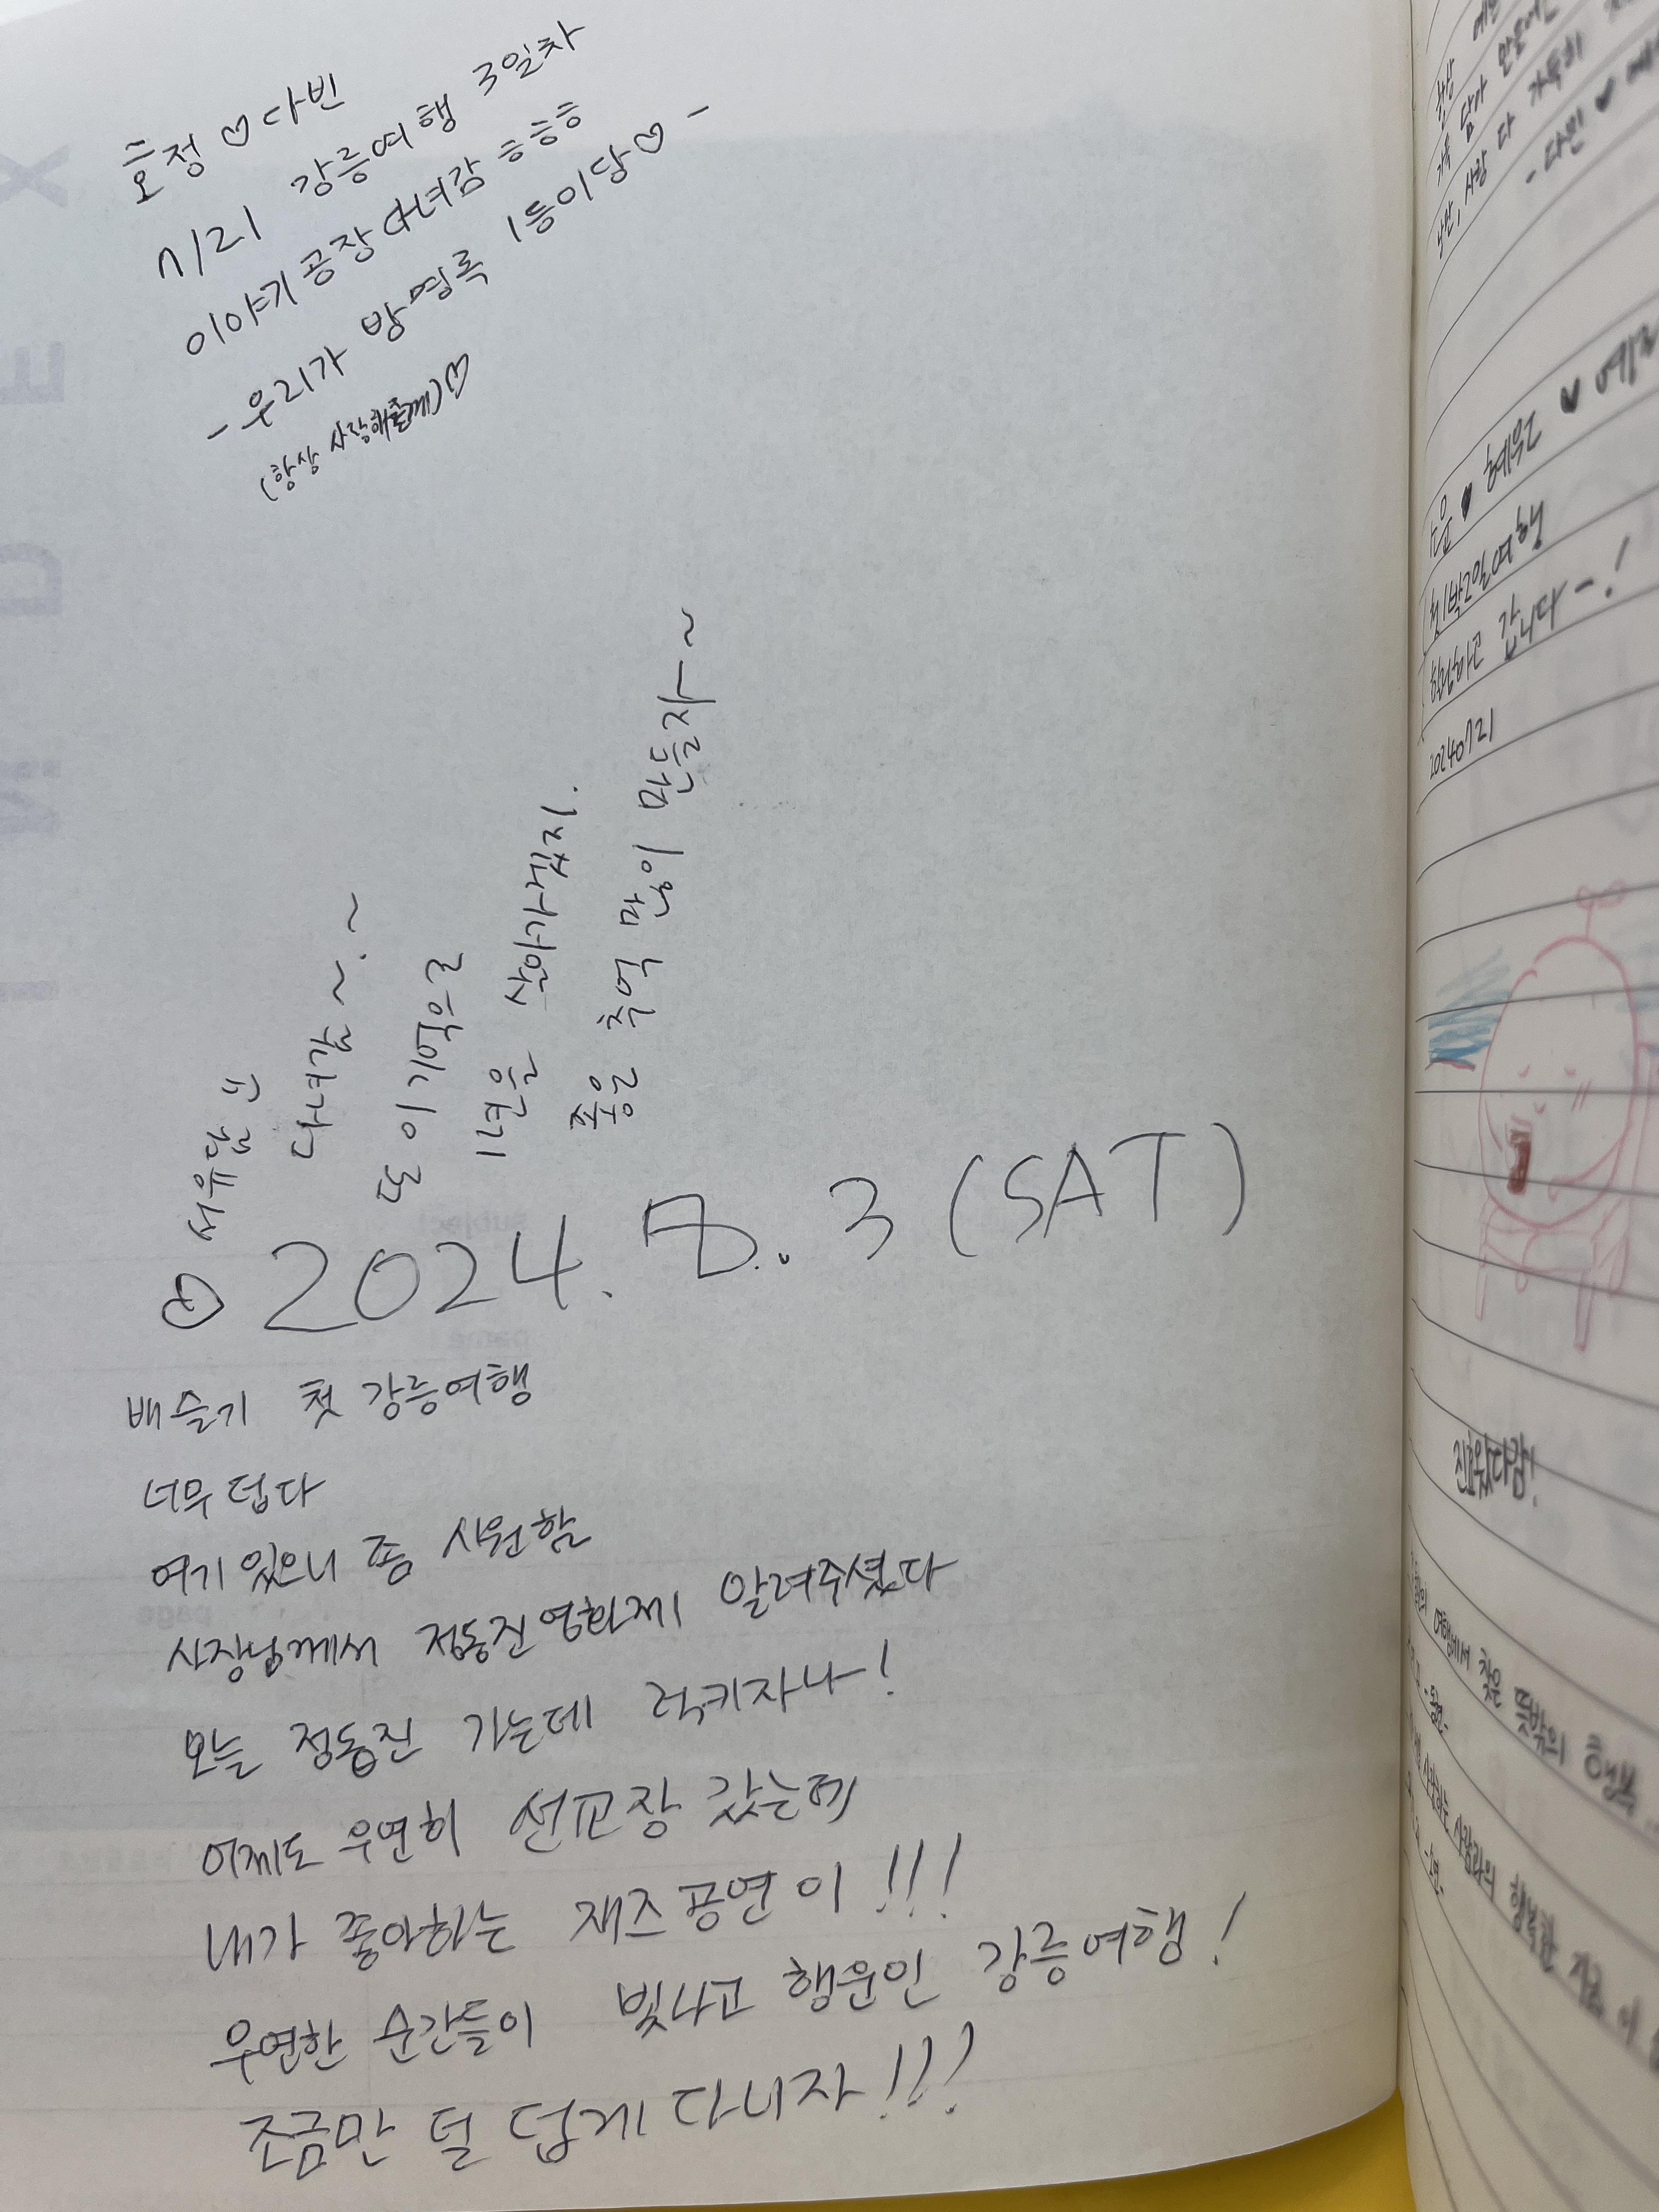 효정 ♡ 다빈
7/21 강릉여행 3일차
이야기 공장 다녀감 ㅎㅎㅎ
- 우리가 방명록 1등이당♡ -
(항상 사랑해줄께)♡
다녀감~.~
이 기억으로
1년을 살아가겠지.
좋은 추억 많이 만들자~~
2024. 8. 3 (SAT)
배슬기 첫 강릉여행
너무 덥다
여기 있으니 좀 시원함
사장님께서 정동진영화제 알려주셨다
오늘 정동진 가는데 럭키자나!
어제도 우연히 선교장 갔는데
내가 좋아하는 재즈공연이!!!
우연한 순간들이 빛나고 행운인 강릉여행!
조금만 덜 덥게 다니자!!!
항상
가득 담아
사랑 다 가득히
- 다빈 ♥
♥ 혜원 ♥
첫1박2일여행
갑니다-!
20240721
진효왔다감!
여행에서 찾은 뜻밖의 행복
사랑하는 사람과의 행복한